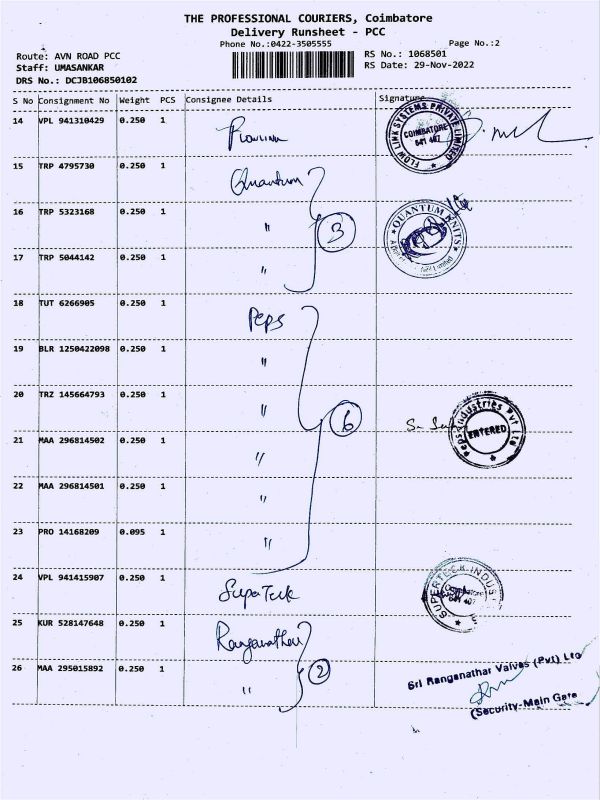 THE PROFESSIONAL COURIERS, Coimbatore
Delivery Runsheet - PCC
Phone No.:0422-3505555
Page No.:2
Route: AVN ROAD PCC
RS No.: 1068501
Staff: UMASANKAR
RS Date: 29-Nov-2022
DRS No.: DCJB106850102
S No Consignment No Weight PCS Consignee Details Signature
14 VPL 941310429 0.250 1
FLOW LINK SYSTEMS PRIVATE LIMITED
COIMBATORE
641 407
15 TRP 4795730 0.250 1 Quantum
16 TRP 5323168 0.250 1 "
3
QUANTUM KNITS
17 TRP 5044142 0.250 1 "
18 TUT 6266905 0.250 1 Peps
19 BLR 1250422098 0.250 1 "
20 TRZ 145664793 0.250 1 "
6
Peps Industries Pvt Ltd
ENTERED
21 MAA 296814502 0.250 1 "
22 MAA 296814501 0.250 1 "
23 PRO 14168209 0.095 1 "
24 VPL 941415907 0.250 1 SupaTeck
SUPERTECK INDUS
Coimbatore
641 407
25 KUR 528147648 0.250 1 Ranganathar
26 MAA 295015892 0.250 1 "
2
Sri Ranganathar Valves (Pvt) Ltd
(Security-Main Gate